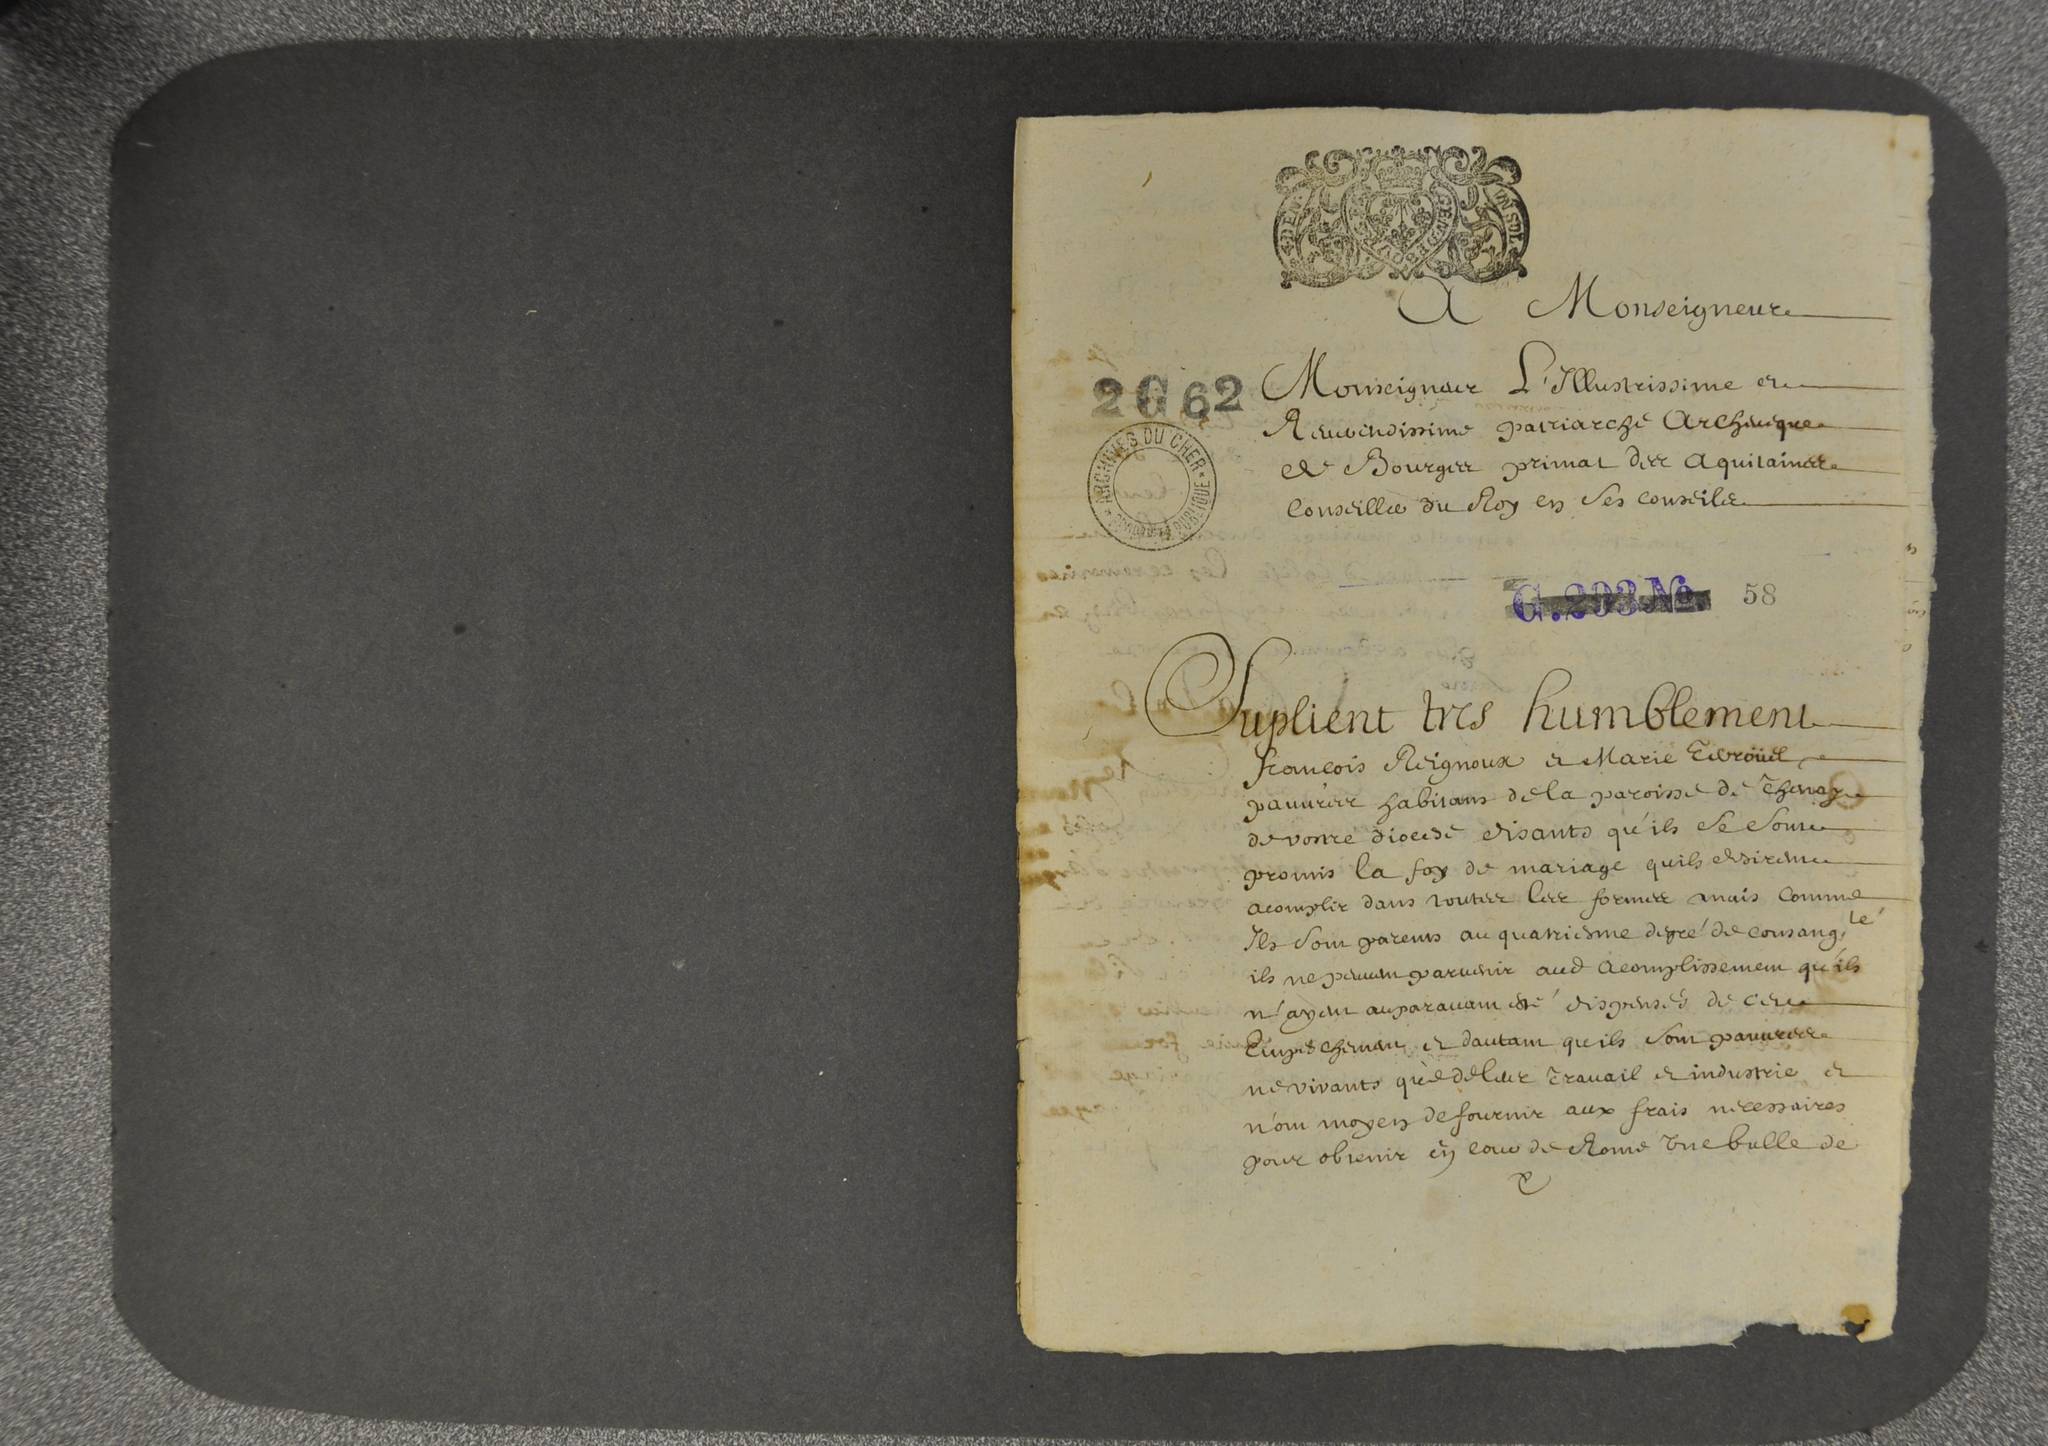 DEN.
UN SOL
A Monseigneur
2 G 62
Monseigneur L'Illustrissime et
Reuerendissime patriarche Archeuesque
de Bourges primat des Aquitaines
Conseiller du Roy en Ses conseils
ARCHIVES DU CHER
G. 293 No. 58
Suplient tres humblement
françois Reignoux et Marie
pauures habitans de la paroisse de Thenay
de vostre diocese disants qu'ils se sont
promis la foy de mariage quils desirent
acomplir dans toutes les formes mais comme
Ils sont parents au quatriesme degré de consang.té
ils ne peuuent paruenir aud acomplissement qu'ils
n'ayent auparauant esté dispensés de cet
Empeschement et dautant quils sont pauures
ne vivants que de leur trauail et industrie et
n'ont moyen de fournir aux frais necessaires
pour obtenir en cour de Rome vne bulle de